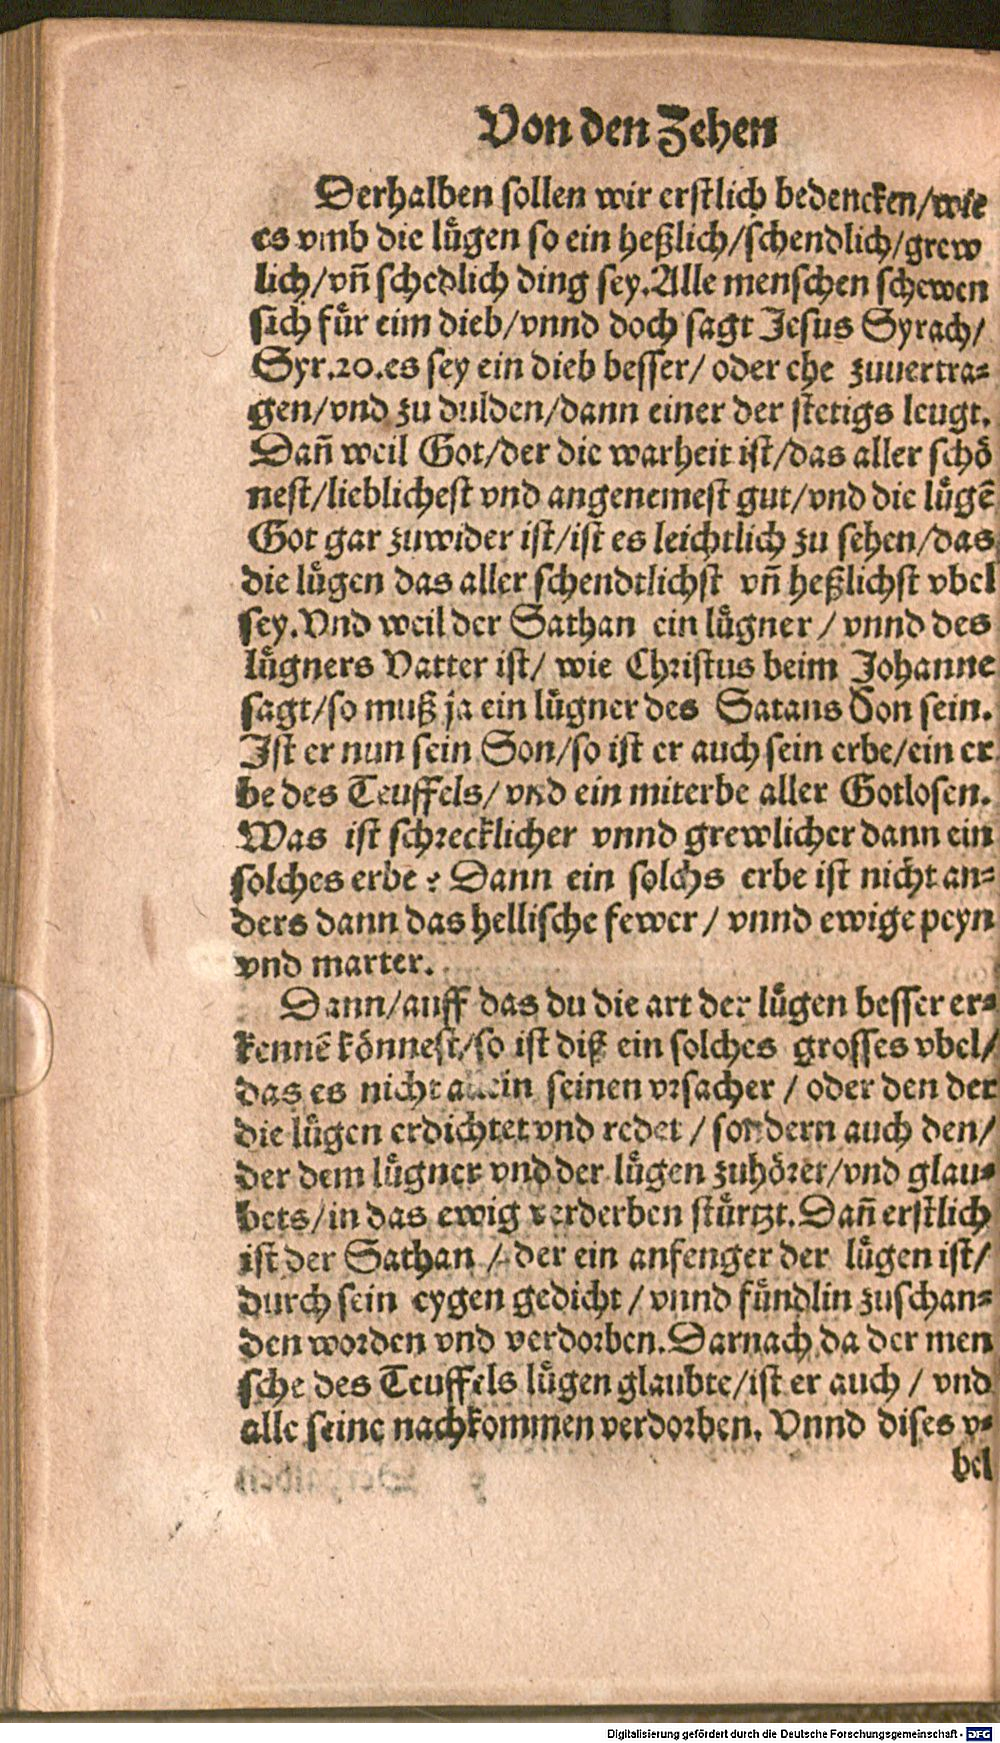 Von den Zehen
Derhalben sollen wir erstlich bedencken/wie
es vmb die luͤgen so ein heßlich/schendlich/grew
lich/vñ schedlich ding sey. Alle menschen schewen
sich fuͤr eim dieb/vnnd doch sagt Jesus Syrach/
Syr.20.es sey ein dieb besser/ oder ehe zuuertra⸗
gen/vnd zu dulden/dann einer der stetigs leugt.
Dañ weil Got/der die warheit ist/das aller schoͤ
nest/lieblichest vnd angenemest gut/vnd die luͤgẽ
Got gar zuwider ist/ist es leichtlich zu sehen/das
die luͤgen das aller schendtlichst vñ heßlichst vbel
sey. Vnd weil der Sathan ein luͤgner / vnnd des
luͤgners Vatter ist/ wie Christus beim Johanne
sagt/so muß ja ein luͤgner des Satans Son sein.
Ist er nun sein Son/so ist er auch sein erbe/ein er
be des Teuffels/ vnd ein miterbe aller Gotlosen.
Was ist schrecklicher vnnd grewlicher dann ein
solches erbe ? Dann ein solchs erbe ist nicht an⸗
ders dann das hellische fewer / vnnd ewige peyn
vnd marter.
Dann/auff das du die art der luͤgen besser er⸗
kennẽ koͤnnest/so ist diß ein solches grosses vbel/
das es nicht allein seinen vrsacher / oder den der
die luͤgen erdichtet vnd redet / sondern auch den/
der dem luͤgner vnd der luͤgen zuhoͤret/vnd glau⸗
bets/in das ewig verderben stuͤrtzt. Dañ erstlich
ist der Sathan / der ein anfenger der luͤgen ist/
durch sein eygen gedicht / vnnd fuͤndlin zuschan⸗
den worden vnd verdorben. Darnach da der men
sche des Teuffels luͤgen glaubte/ist er auch / vnd
alle seine nachkommen verdorben. Vnnd dises v⸗
bel
Digitalisierung gefördert durch die Deutsche Forschungsgemeinschaft - DFG